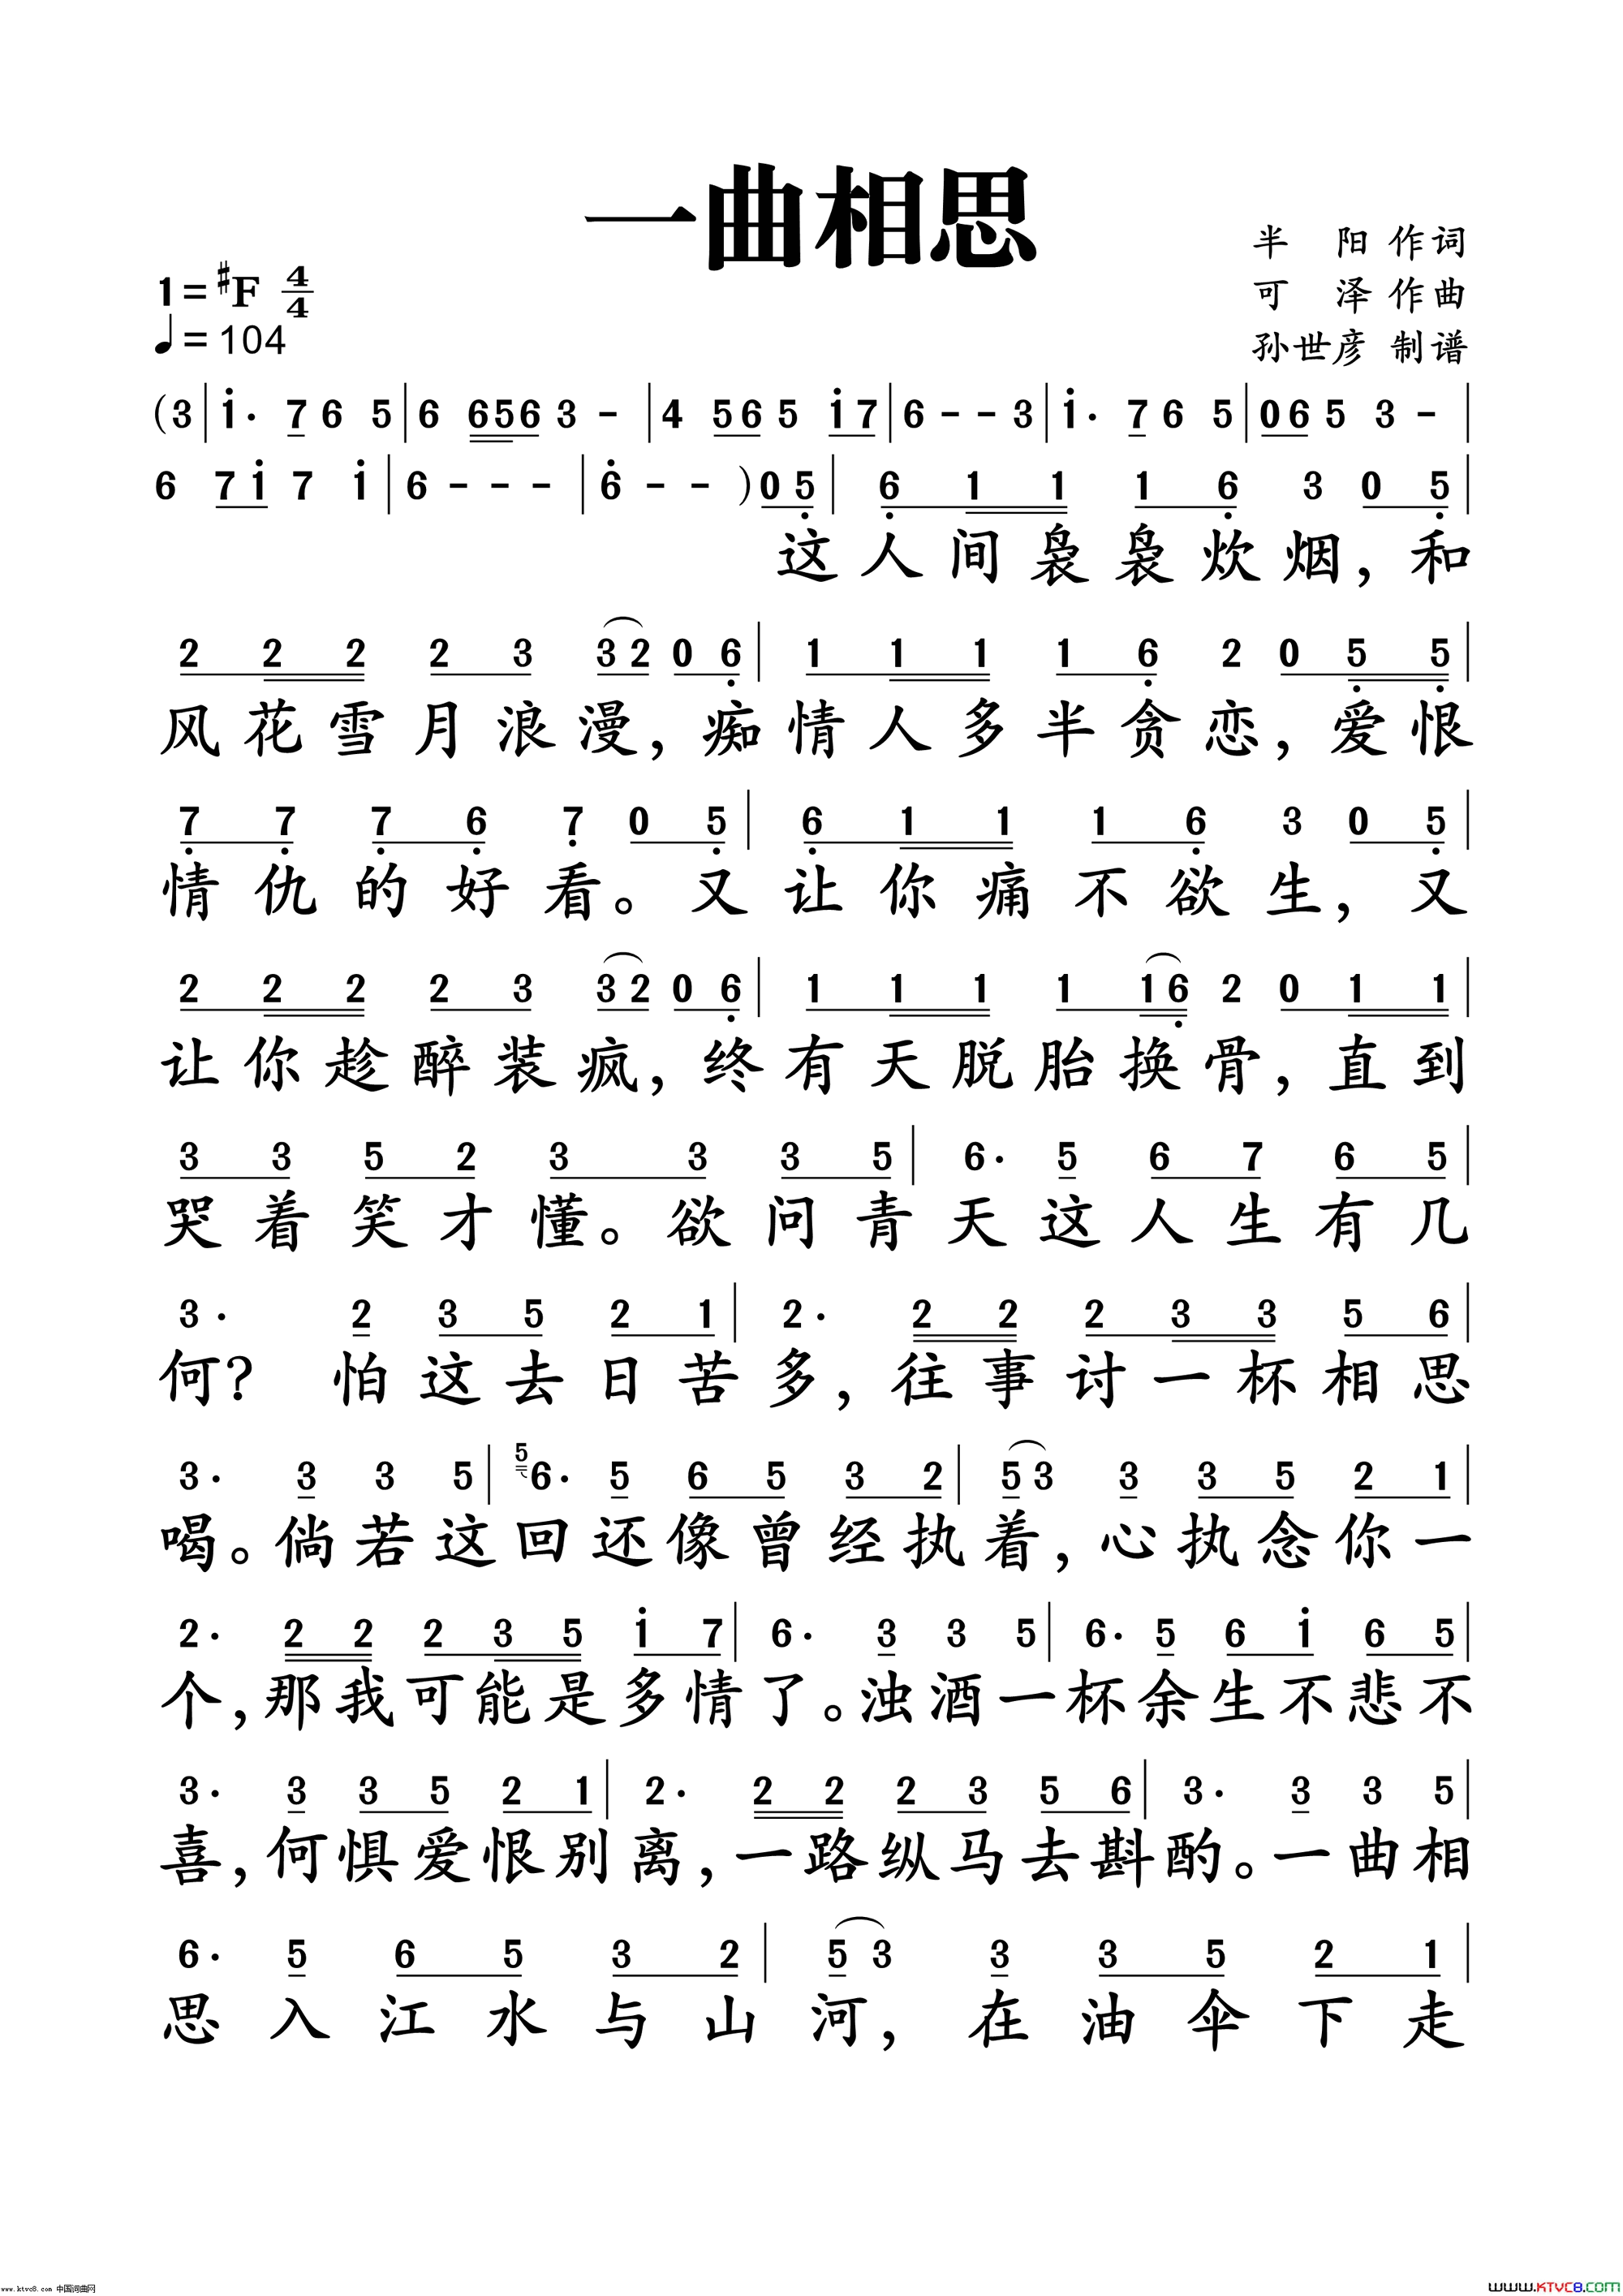 一曲相思
半 阳 作词
1=#F 4/4
可 泽 作曲
♩=104
孙世彦 制谱
(3|i· 7 6 5|6 656 3 -|4 56 5 i7|6 - - 3|i· 7 6 5|06 5 3 -|
6 7i 7 i|6 - - -|6 - - )05|6 1 1 1 6 3 0 5|
这人间袅袅炊烟,和
2 2 2 2 3 32 0 6|1 1 1 1 6 2 0 5 5|
风花雪月浪漫,痴情人多半贪恋,爱恨
7 7 7 6 7 0 5|6 1 1 1 6 3 0 5|
情仇的好看。又让你痛不欲生,又
2 2 2 2 3 32 0 6|1 1 1 1 16 2 0 1 1|
让你趁醉装疯,终有天脱胎换骨,直到
3 3 5 2 3 3 3 5|6· 5 6 7 6 5|
哭着笑才懂。欲问青天这人生有几
3· 2 3 5 2 1|2· 2 2 2 3 3 5 6|
何? 怕这去日苦多,往事讨一杯相思
3· 3 3 5|5 6· 5 6 5 3 2|5 3 3 3 5 2 1|
喝。倘若这回还像曾经执着,心执念你一
2· 2 2 2 3 5 i 7|6· 3 3 5|6· 5 6 i 6 5|
个,那我可能是多情了。浊酒一杯余生不悲不
3· 3 3 5 2 1|2· 2 2 2 3 5 6|3· 3 3 5|
喜,何惧爱恨别离,一路纵马去斟酌。一曲相
6· 5 6 5 3 2|5 3 3 3 5 2 1|
思入江水与山河,在油伞下走
www.ktvc8.com 中国词曲网
WWW.KTVC8.COM